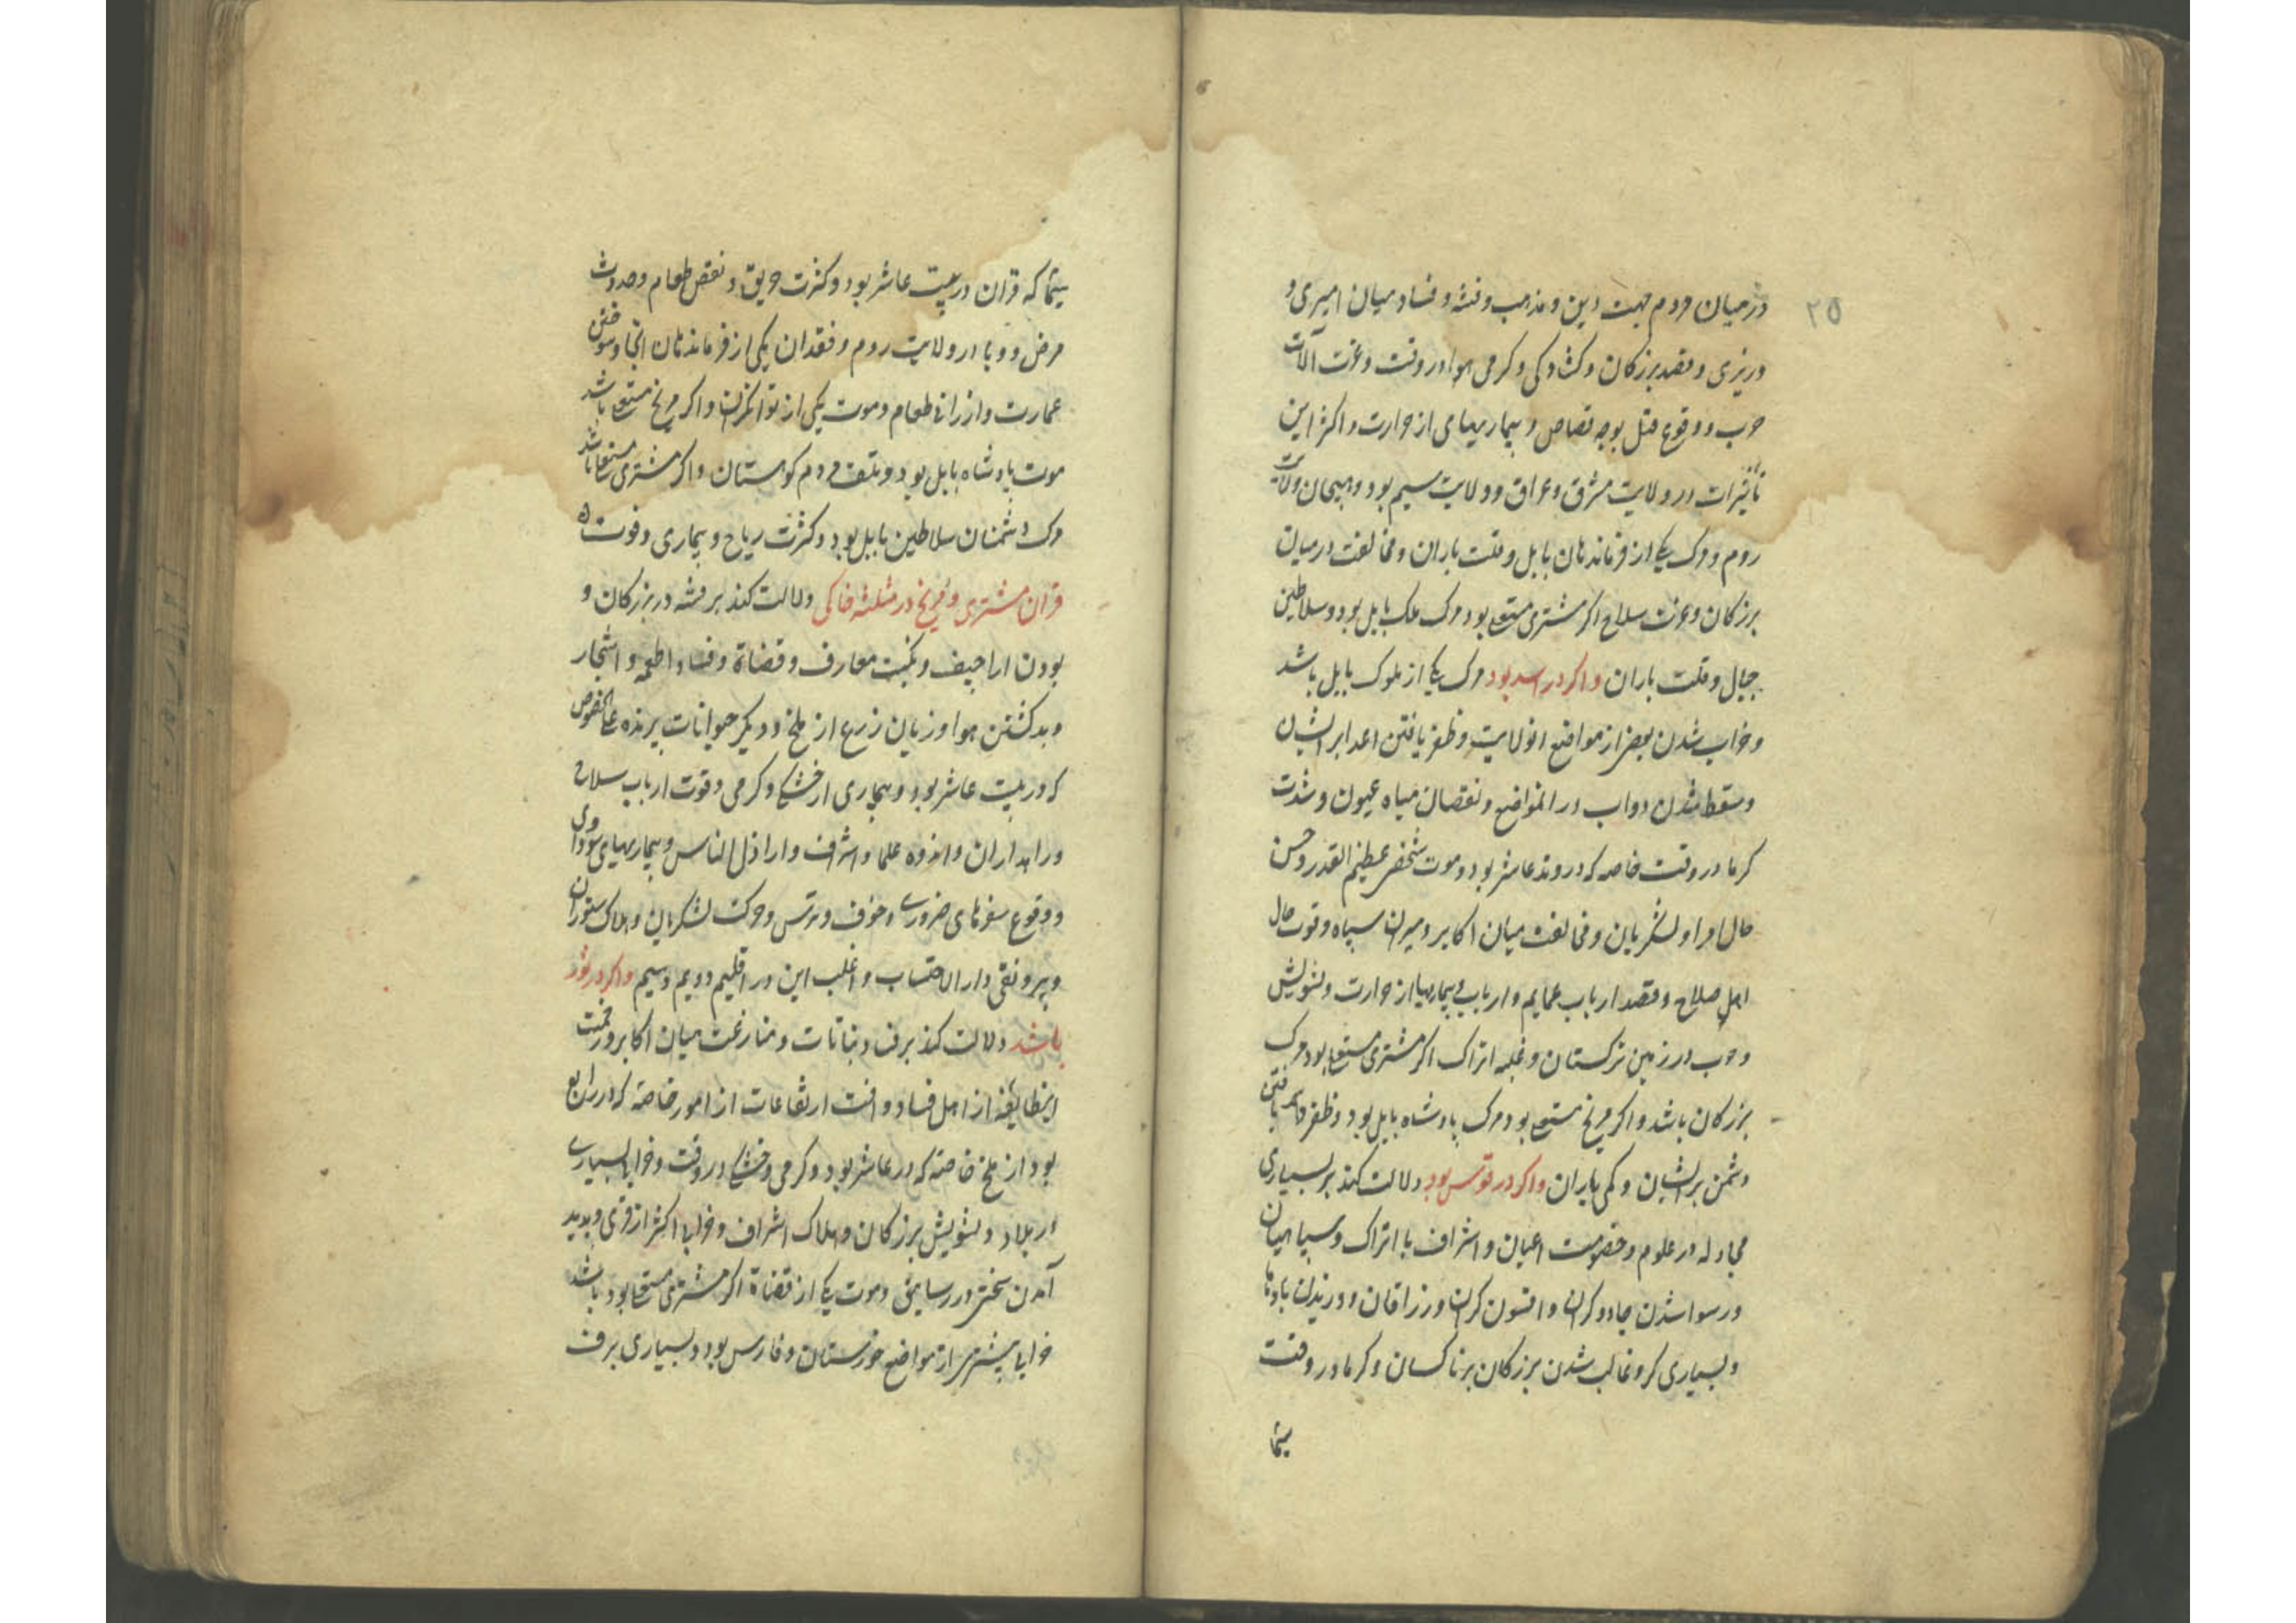 ۲۵
در میان مردم جهت دین و مذهب و فتنه و فساد میان امیری و
وزیری و قصد بزرکان و کشادکی و کرمی هوا در وقت و عزت آلات
حرب و وقوع قتل بوجه قصاص و بیماریهای از حرارت و اکثر این
تاثیرات در ولایت مشرق و عراق و ولایت سیم بود و هیجان ولایت
روم و مرک یکی از فرماندهان بابل و قلت باران و مخالفت در میان
بزرکان و عزت سلاح اکر مشتری مستعلی بود مرک ملک بابل بود و سلاطین
جبال و قلت باران و اکر در اسد بود مرک یکی از ملوک بابل باشد
و خراب شدن بعضی از مواضع انولایت و ظفر یافتن اعدا بر ایشان
و سقط شدن دواب در انمواضع و نقصان میاه عیون و شدت
کرما در وقت خاصه که در وتد عاشر بود و موت شخصی عظیم القدر و حسن
حال امرا و لشکریان و مخالفت میان اکابر و میران سپاه و قوت حال
اهل صلاح و قصد ارباب عمایم و ارباب و بیماریها از حرارت و تشویش
و حرب در زمین ترکستان و غلبه اتراک اکر مشتری مستعلی بود مرک
بزرکان باشد و اکر مریخ مستعلی بود مرک پادشاه بابل بود و ظفر یافتن
دشمن بر ایشان و کمی باران و اکر در قوس بود دلالت کند بر بسیاری
مجادله در علوم و خصومت اعیان و اشراف با اتراک و سپاهیان
و رسوا شدن جادوکران و افسون کران و زراقان و وزیدن بادها
و بسیاری کر و غالب شدن بزرکان بر ناکسان و کرما در وقت
سیما
سیما که قران در بیت عاشر بود و کثرت حریق و نقص طعام و حدوث
مرض و وبا در ولایت روم و فقدان یکی از فرماندهان انجا و سوختن
عمارت و ارزانی طعام و موت یکی از توانکران و اکر مریخ مستعلی باشد
موت پادشاه بابل بود و تلف مردم کوهستان و اکر مشتری مستعلی باشد
مرک دشمنان سلاطین بابل بود و کثرت ریاح و بیماری و فوت
قران مشتری و مریخ در مثلثه خاکی دلالت کند بر فتنه در بزرکان و
بودن اراجیف و نکبت معارف و قضاة و فساد اطعمه و اشجار
و بد کشتن هوا و زیان زرع از ملخ و دیکر حیوانات پرنده علی الخصوص
که در بیت عاشر بود و بیماری از خشکی و کرمی و قوت ارباب سلاح
و راهداران و اندوه علما و اشراف و اراذل الناس و بیماریهای سوداوی
و وقوع سفرهای ضروری و خوف و ترس و حرکت لشکریان و هلاک ستوران
و بیرونقی دار الاحتساب و اغلب این در اقلیم دویم و سیم و اکر در ثور
باشد دلالت کند بر نباتات و منازعت میان اکابر و زحمت
اینطایفه از اهل فساد و افت ارتفاعات از امور خاصه که در رابع
بود از ملخ خاصه که در عاشر بود و کرمی و خشکی در وقت و خرابی بسیاری
در بلاد و تشویش بزرکان و هلاک اشراف و خرابی اکثر از قری و پدید
آمدن سختی در رساتیق و موت یکی از قضاة اکر مشتری مستعلی بود باشد
خرابی بیشتری از مواضع خوزستان و فارس بود و بسیاری برف